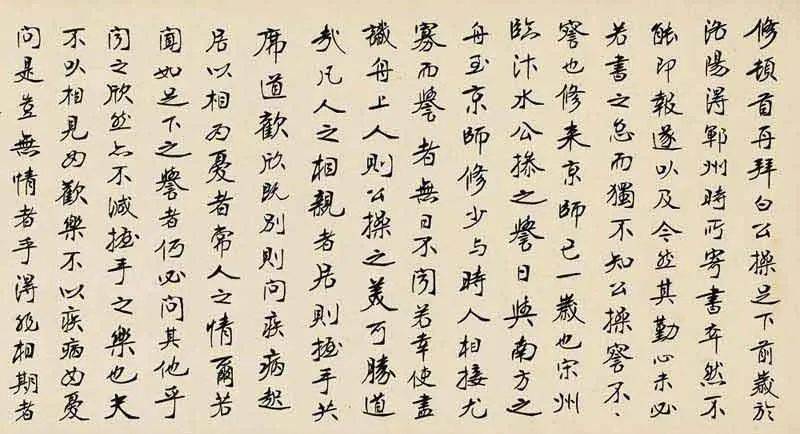 修頓首再拜白公操足下前歲於
洛陽得鄆州時所寄書卒然不
能即報遂以及今然其勤心未必
若書之怠而獨不知公操詧不、
詧也修来京師已一歲也宋州
臨汴水公操之譽日與南方之
舟至京師修少与時人相接尤
寡而譽者無日不聞若幸使盡
識舟上人則公操之美可勝道
哉凡人之相親者居則握手共
席道歡欣既別則問疾病起
居以相為憂者常人之情爾若
聞如足下之譽者何必問其他乎
聞之欣然亦不減握手之樂也夫
不以相見為歡樂不以疾病為憂
問是豈無情者乎得非相期者